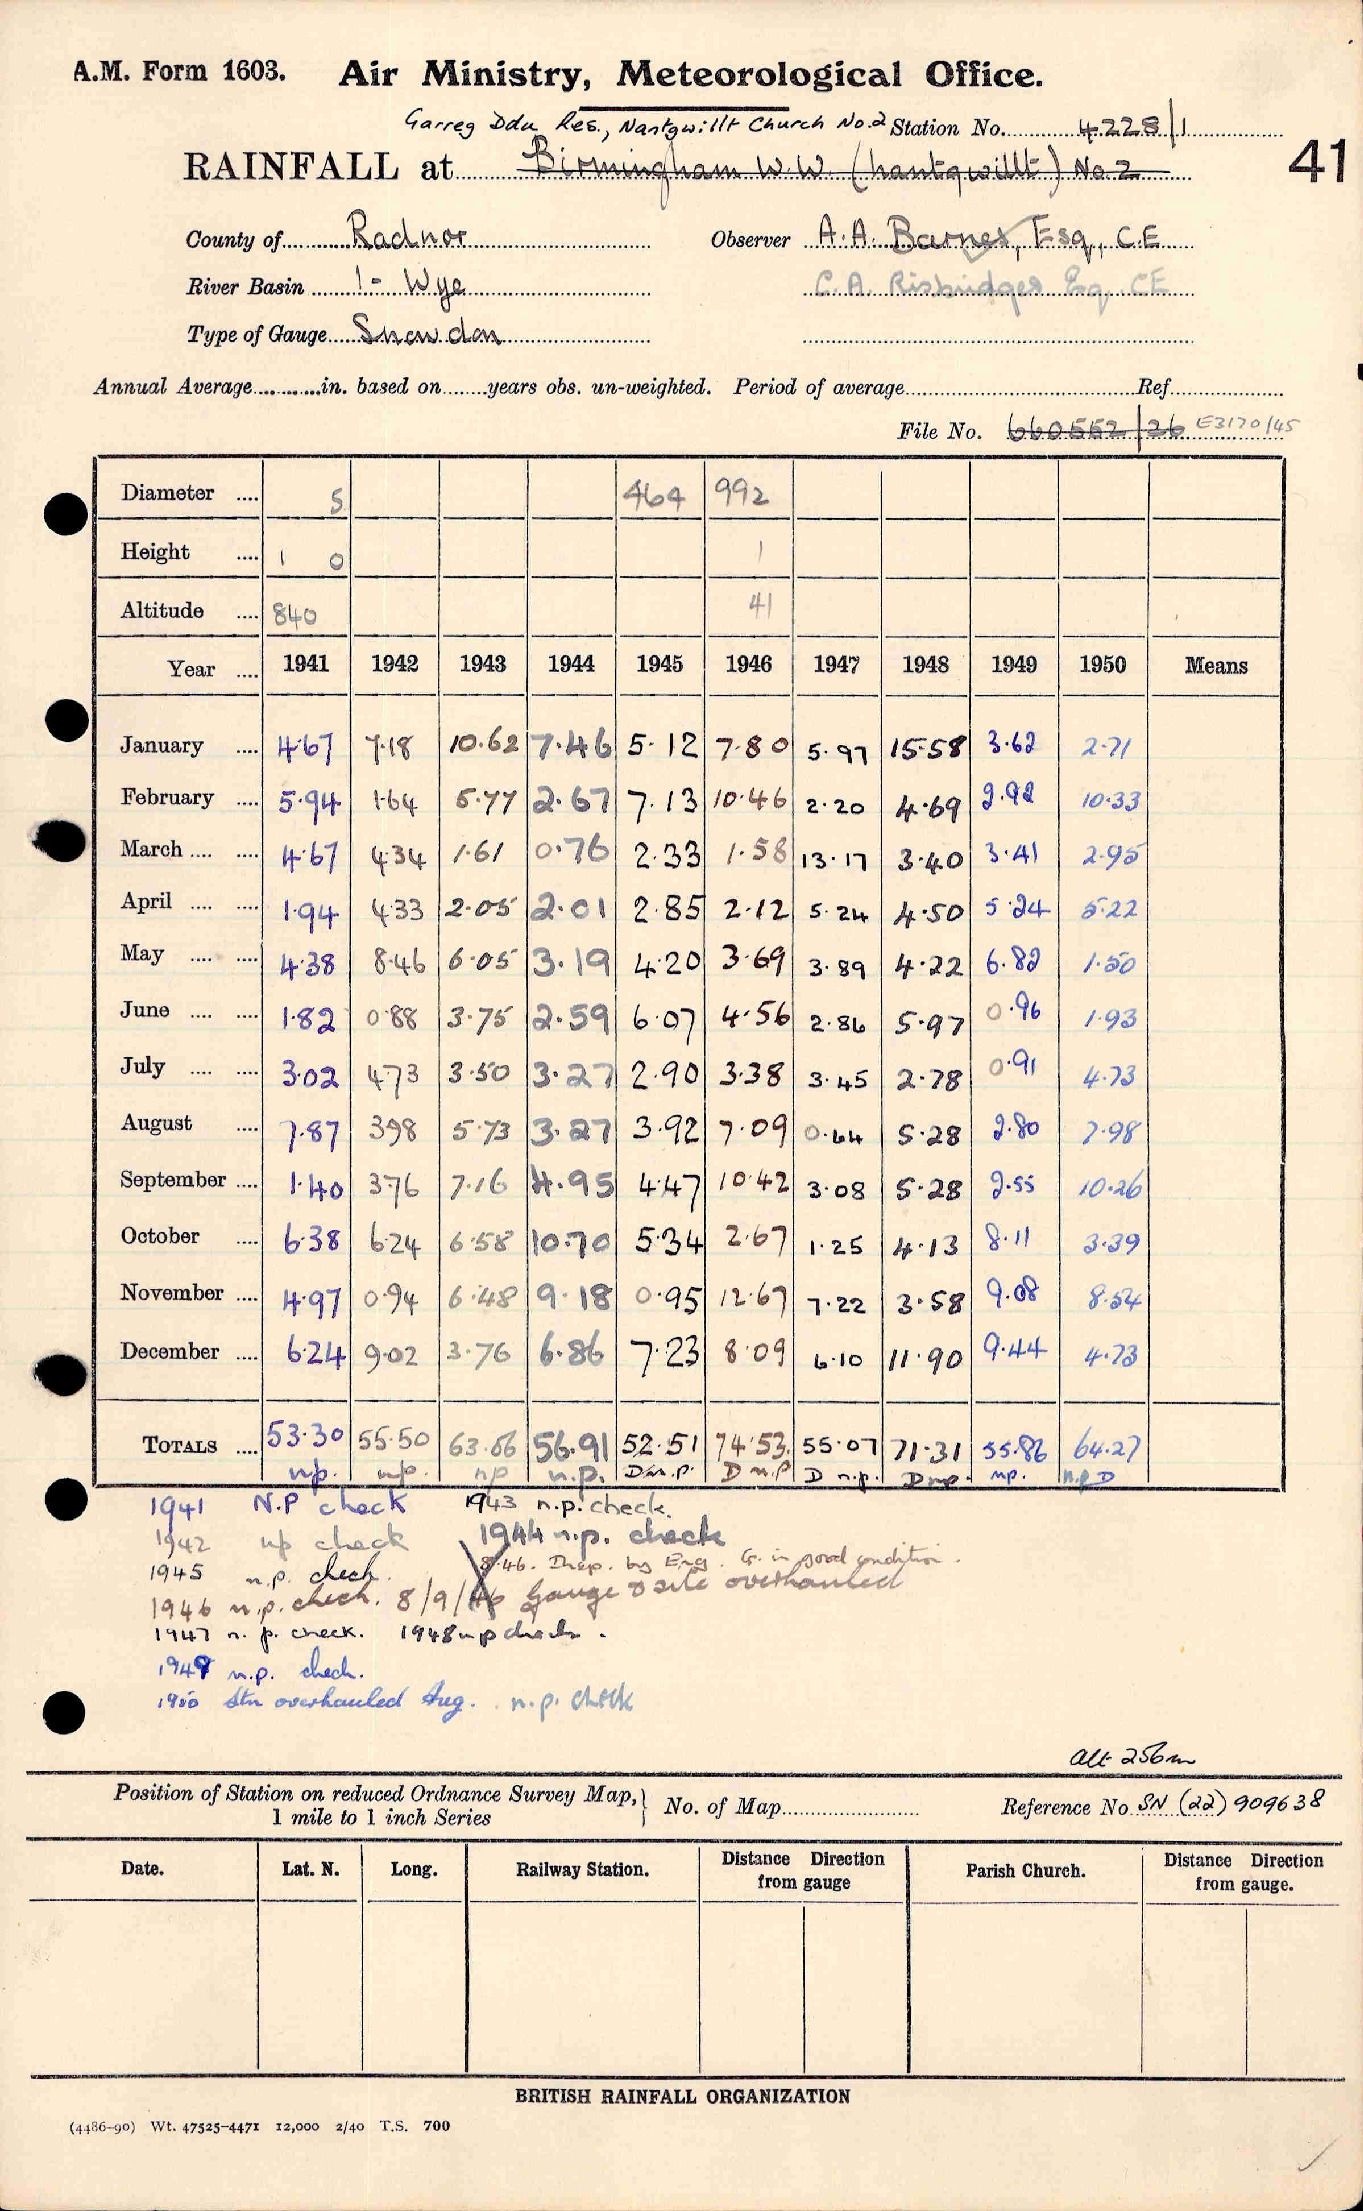 A.M. Form 1603. Air Ministry, Meteorological Office.
Garreg Ddu Res., Nantgwillt Church No.2 Station No. 4228/1
RAINFALL at Birmingham W.W. (Nantgwillt) No. 2
41
County of Radnor Observer A.A. Barnes, Esq., C.E
River Basin 1- Wye C.A. Risbridger Esq. CE
Type of Gauge Snowdon
Annual Average in. based on years obs. un-weighted. Period of average Ref.
File No. 660552/26 E3170/45
Diameter .... 5 464 992
Height .... 1 0 1
Altitude .... 840 41
Year .... 1941 1942 1943 1944 1945 1946 1947 1948 1949 1950 Means
January .... 4.67 7.18 10.62 7.46 5.12 7.80 5.97 15.58 3.62 2.71
February .... 5.94 1.64 5.77 2.67 7.13 10.46 2.20 4.69 2.92 10.33
March .... .... 4.67 4.34 1.61 0.76 2.33 1.58 13.17 3.40 3.41 2.95
April .... .... 1.94 4.33 2.05 2.01 2.85 2.12 5.24 4.50 5.24 5.22
May .... .... 4.38 8.46 6.05 3.19 4.20 3.69 3.89 4.22 6.82 1.50
June .... .... 1.82 0.88 3.75 2.59 6.07 4.56 2.86 5.97 0.96 1.93
July .... .... 3.02 4.73 3.50 3.27 2.90 3.38 3.45 2.78 0.91 4.73
August .... 7.87 3.98 5.73 3.27 3.92 7.09 0.64 5.28 2.80 7.98
September .... 1.40 3.76 7.16 4.95 4.47 10.42 3.08 5.28 2.55 10.26
October .... 6.38 6.24 6.58 10.70 5.34 2.67 1.25 4.13 8.11 3.39
November .... 4.97 0.94 6.48 9.18 0.95 12.67 7.22 3.58 9.08 8.54
December .... 6.24 9.02 3.76 6.86 7.23 8.09 6.10 11.90 9.44 4.73
TOTALS .... 53.30 55.50 63.06 56.91 52.51 74.53 55.07 71.31 55.86 64.27
n.p. n.p. np n.p. D n.p. D n.p D n.p. D n.p. n.p. n.p D
1941 N.P check 1943 n.p. check.
1942 np check 1944 n.p. check
1945 n.p. check. 8.46. Insp. by Eng. G. in good condition.
1946 n.p. check. 8/9/46 Gauge & site overhauled
1947 n.p. check. 1948 n.p check.
1949 n.p. check.
1950 Stn overhauled Aug. n.p. check
alt 256m
Position of Station on reduced Ordnance Survey Map, 1 mile to 1 inch Series No. of Map Reference No SN (22) 909638
Date. Lat. N. Long. Railway Station. Distance Direction from gauge Parish Church. Distance Direction from gauge.
BRITISH RAINFALL ORGANIZATION
(4486-90) Wt. 47525-4471 12,000 2/40 T.S. 700